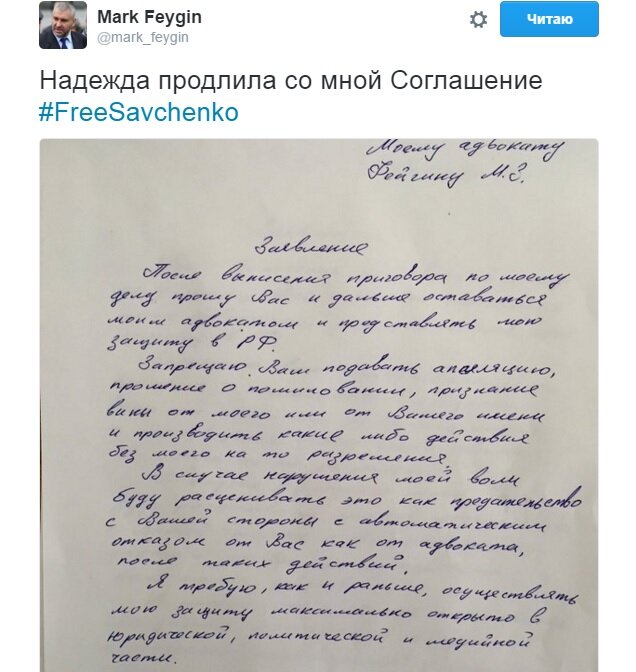 Mark Feygin
@mark_feygin
Читаю
Надежда продлила со мной Соглашение
#FreeSavchenko
Моему адвокату
Фейгину М.З.
Заявление
После вынисения приговора по моему
делу прошу Вас и дальше оставаться
моим адвокатом и представлять мою
защиту в РФ.
Запрещаю Вам подавать апеляцию,
прошение о помиловании, признание
вины от моего или от Вашего имени
и производить какие либо действия
без моего на то разрешения.
В случае нарушения моей воли
буду расценивать это как предательство
с Вашей стороны с автоматическим
отказом от Вас как от адвоката,
после таких действий.
Я требую, как и раньше, осуществлять
мою защиту максимально открыто в
юридической, политической и медийной
части.